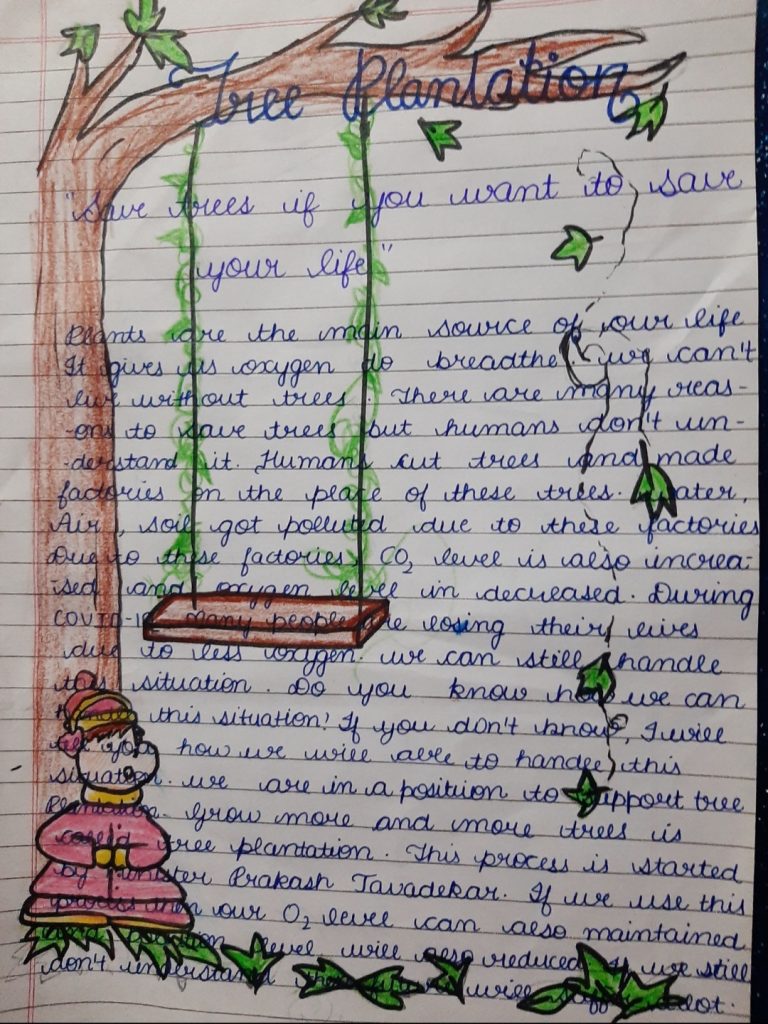 Tree Plantation
"Save trees if you want to save
your life"
Plants are the main source of our life
It gives us oxygen to breadthe we can't
live without trees. There are many reas-
-ons to save trees but humans don't un-
-derstand it. Humans cut trees and made
factories on the place of these trees. Water,
Air, soil got polluted due to these factories
Due to these factories, CO₂ level is also increa-
-sed and oxygen level in decreased. During
COVID-19 many people are losing their lives
due to less oxygen. we can still handle
this situation. Do you know how we can
handle this situation! If you don't know, I will
tell you how we will able to handle this
situation. we are in a position to support tree
Plantation. Grow more and more trees is
tree plantation. This process is started
by Minister Prakash Javadekar. If we use this
process then our O₂ level can also maintained
and level will also reduced. If we still
don't understand will suffer alot.